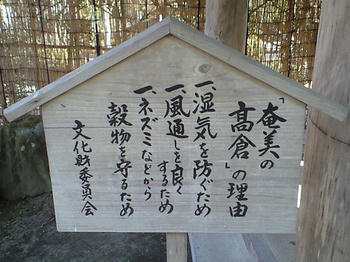 「奄美の
高倉」の理由
一、湿気を防ぐため
一、風通しを良く
するため
一、ネズミなどから
穀物を守るため
文化財委員会